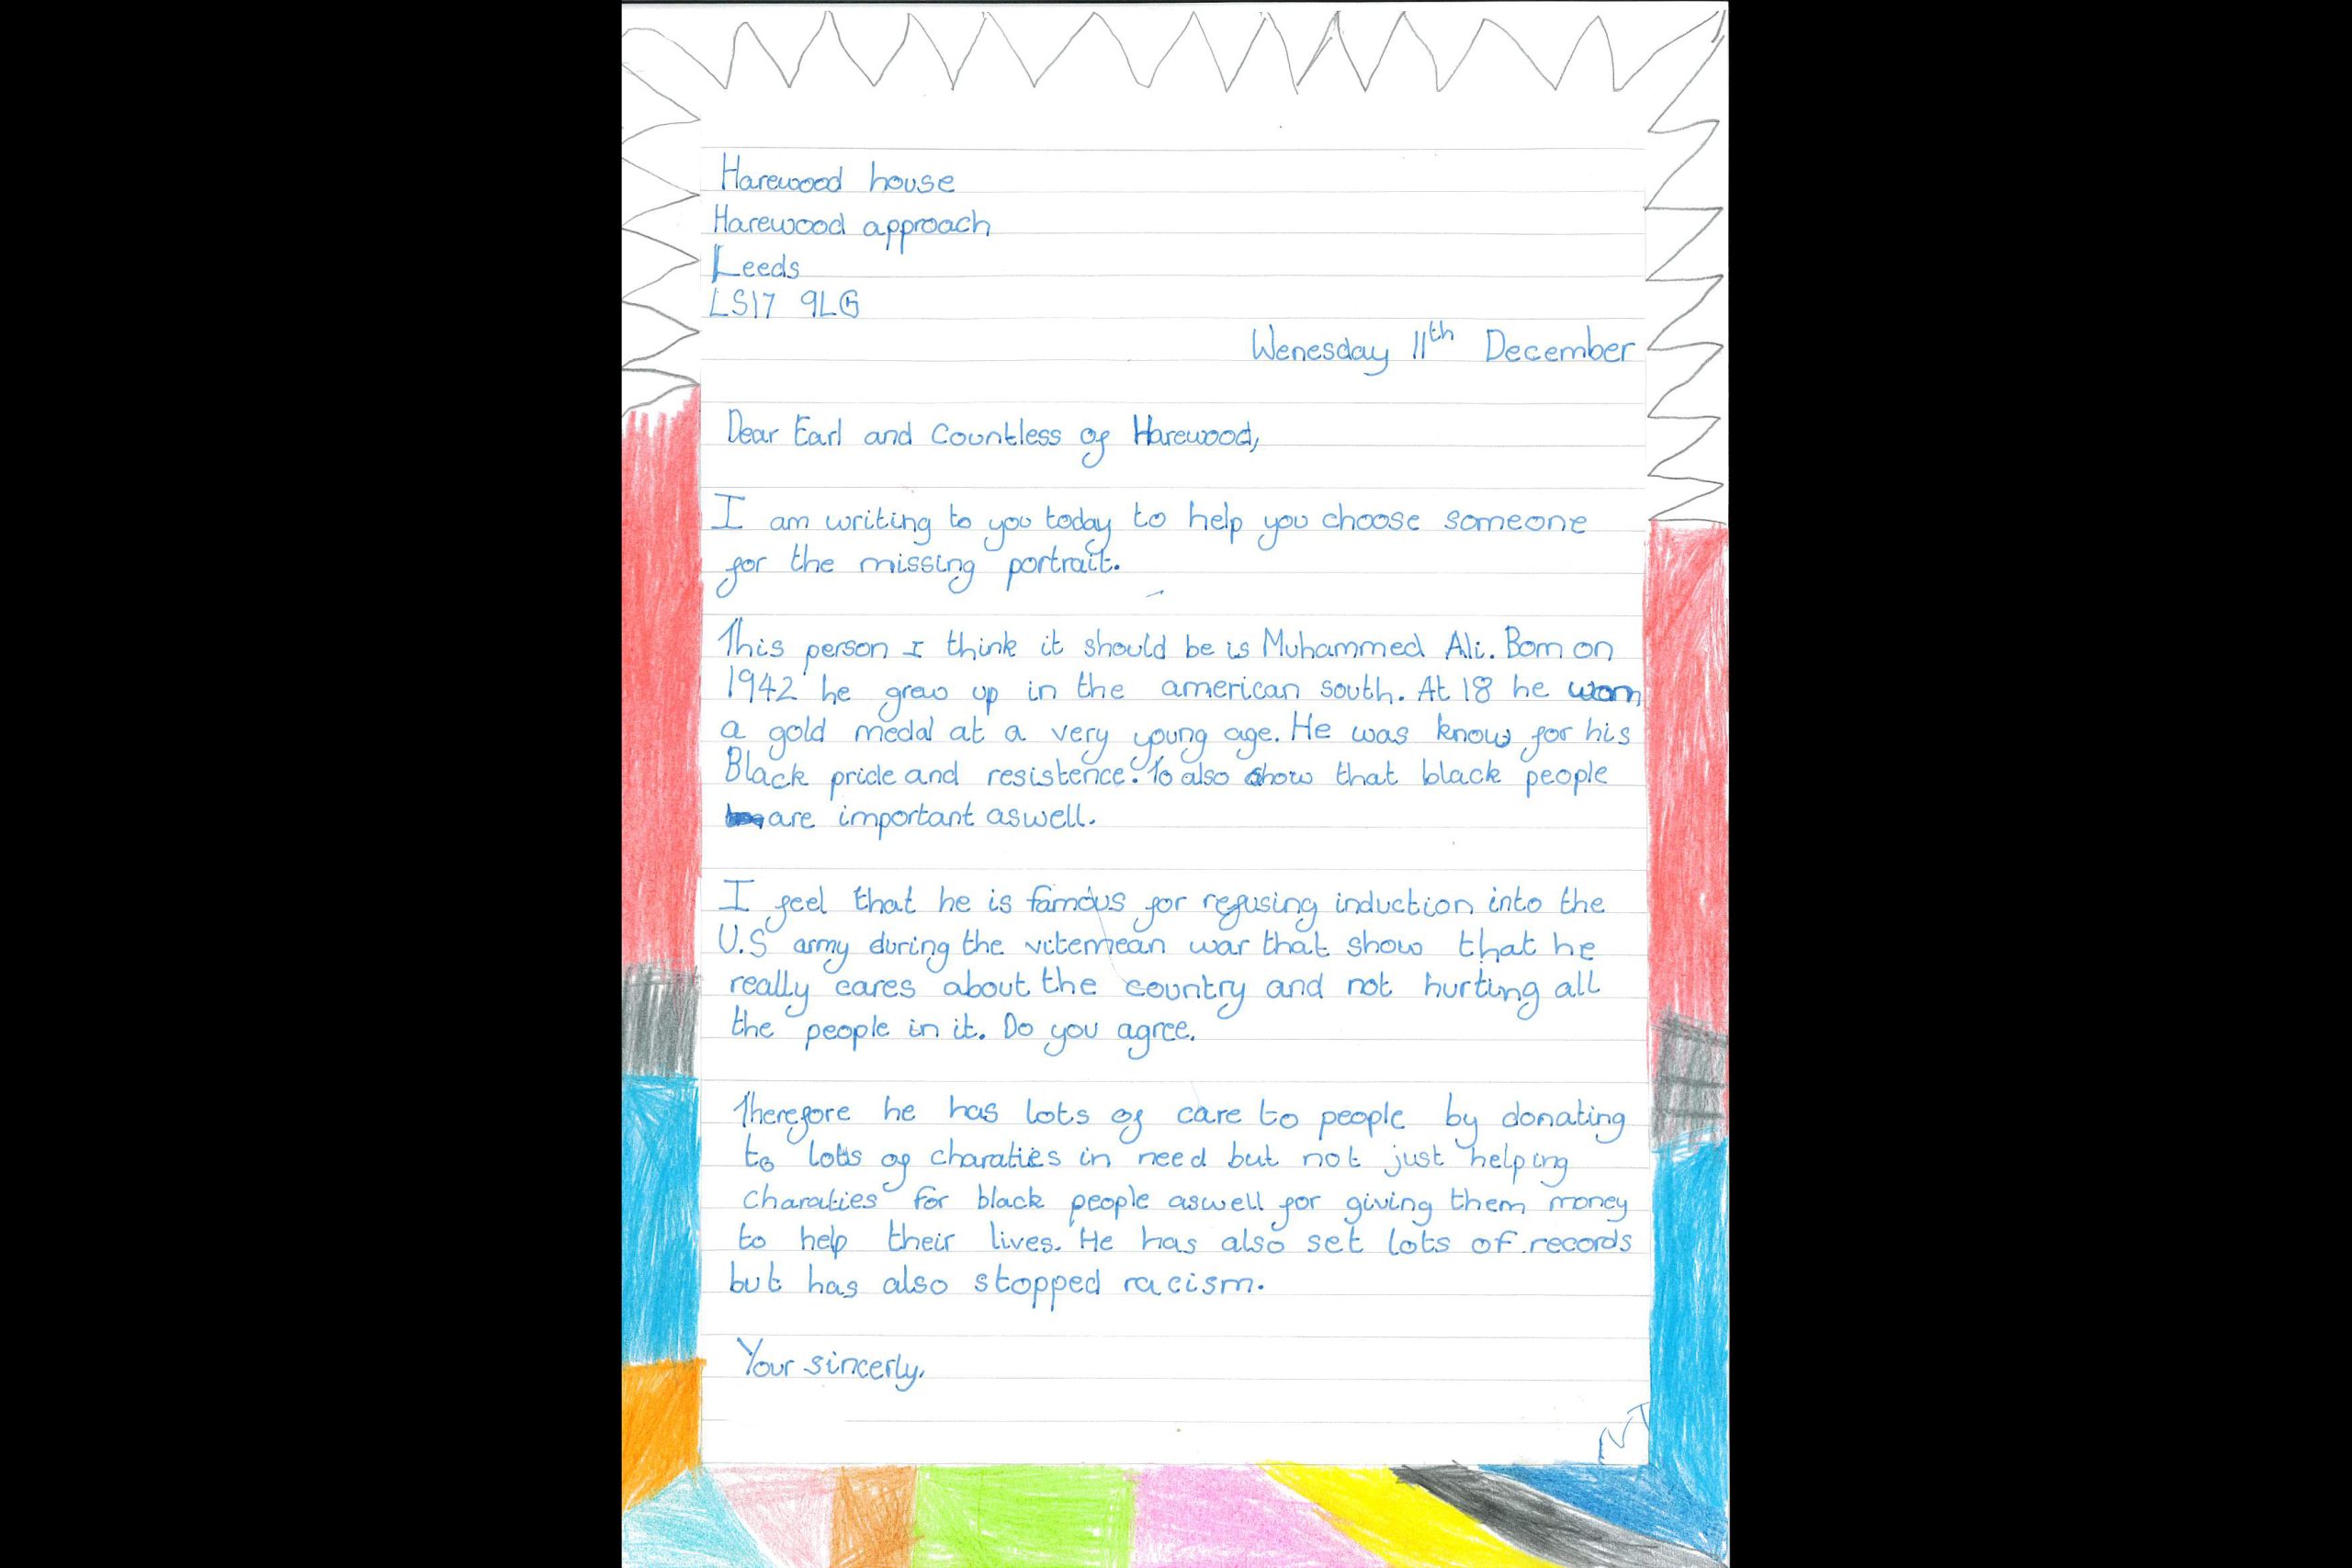 Harewood house
Harewood approach
Leeds
LS17 9LG
Wenesday 11th December
Dear Earl and Countless of Harewood,
I am writing to you today to help you choose someone
for the missing portrait.
This person I think it should be is Muhammed Ali. Born on
1942 he grew up in the american south. At 18 he won
a gold medal at a very young age. He was know for his
Black pride and resistence. To also show that black people
are important aswell.
I feel that he is famous for refusing induction into the
U.S army during the vitemean war that show that he
really cares about the country and not hurting all
the people in it. Do you agree.
Therefore he has lots of care to people by donating
to lots of charaties in need but not just helping
charaties for black people aswell for giving them money
to help their lives. He has also set lots of records
but has also stopped racism.
Your sincerly,